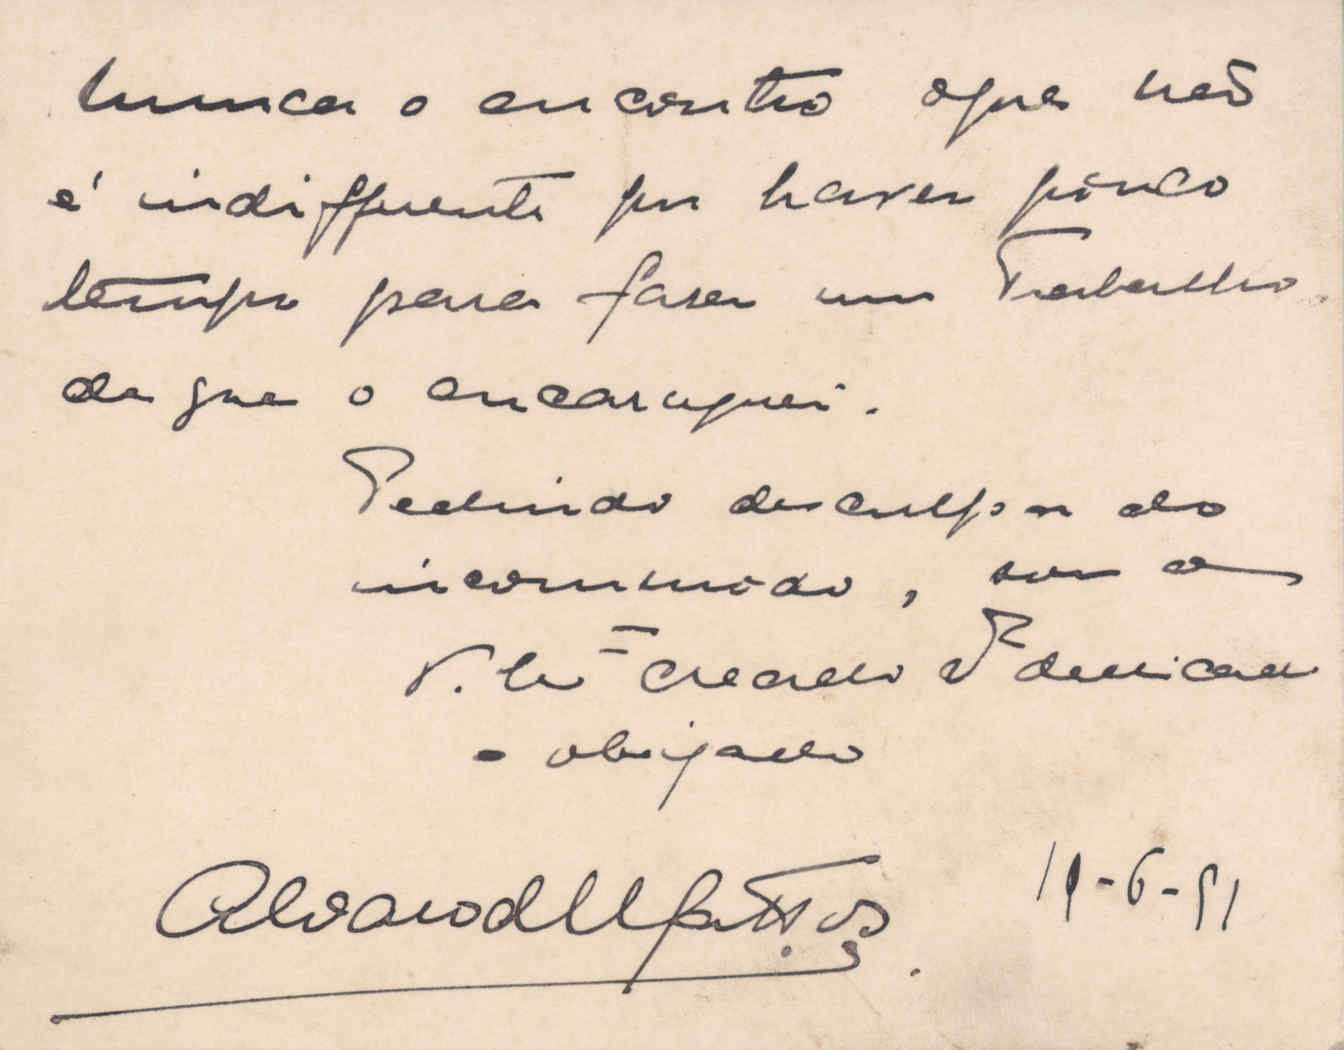 nunca o encontro o que não
é indifferente por haver pouco
tempo para fazer um Trabalho
de que o encarreguei.
Pedindo desculpa do
incommodo, sou de
V. creado dedicado
e obrigado
Alvaro de Mattos
19-6-51